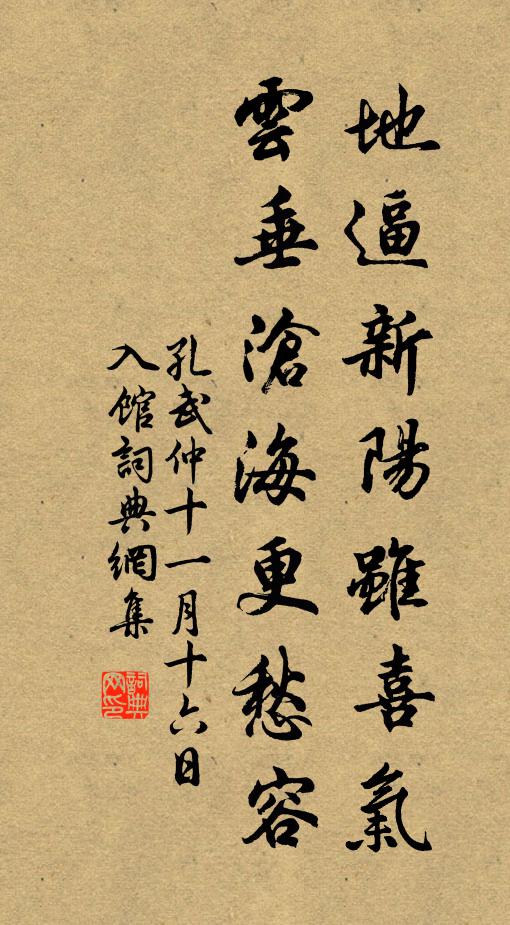 地逼新陽雖喜氣
雲垂滄海更愁容
孔武仲十一月十六日
入館詞典網集
詞典
网印